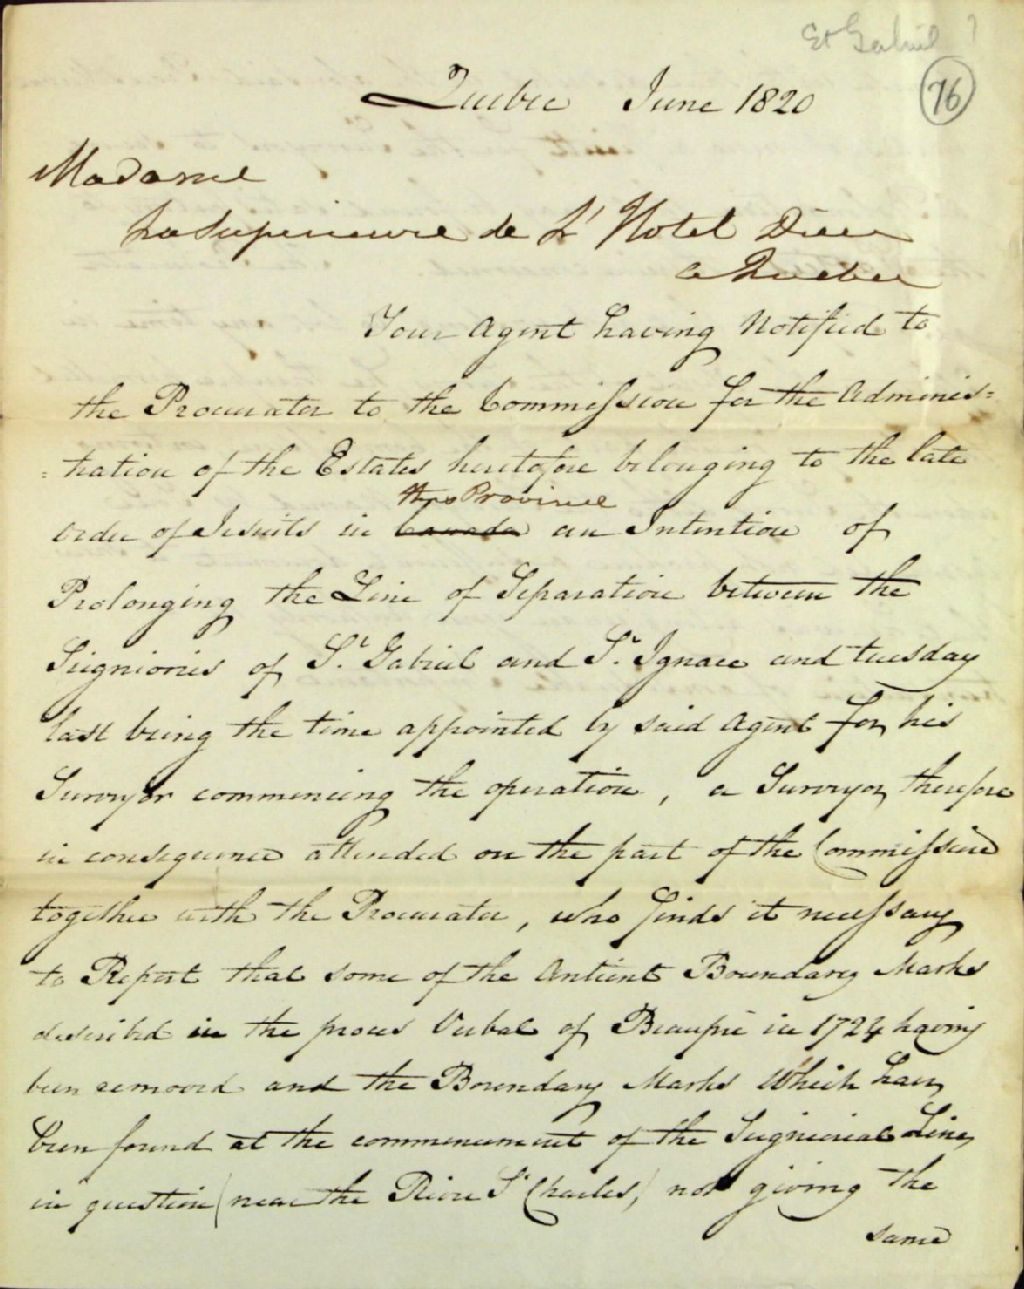 St Gabriel ?
76
Quebec June 1820
Madame
La Superieure de L' Hotel Dieu
a Quebec
Your Agent having Notified to
the Procurator to the Commission for the Adminis=
=tration of the Estates heretofore belonging to the late
this Province
order of Jesuits in Canada an Intention of
Prolonging the Line of Separation between the
Seigniories of St. Gabriel and St. Ignace and tuesday
last being the time appointed by said Agent for his
Surveyor commencing the operation, a Surveyor therefore
in consequence attended on the part of the Commission
together with the Procurator, who finds it necessary
to Report that some of the Antient Boundary Marks
described in the proces Verbal of Beaupré in 1724 having
been removed and the Boundary Marks Which have
been found at the commencement of the Seigniorial Line
in question (near the River St Charles,) not giving the
same